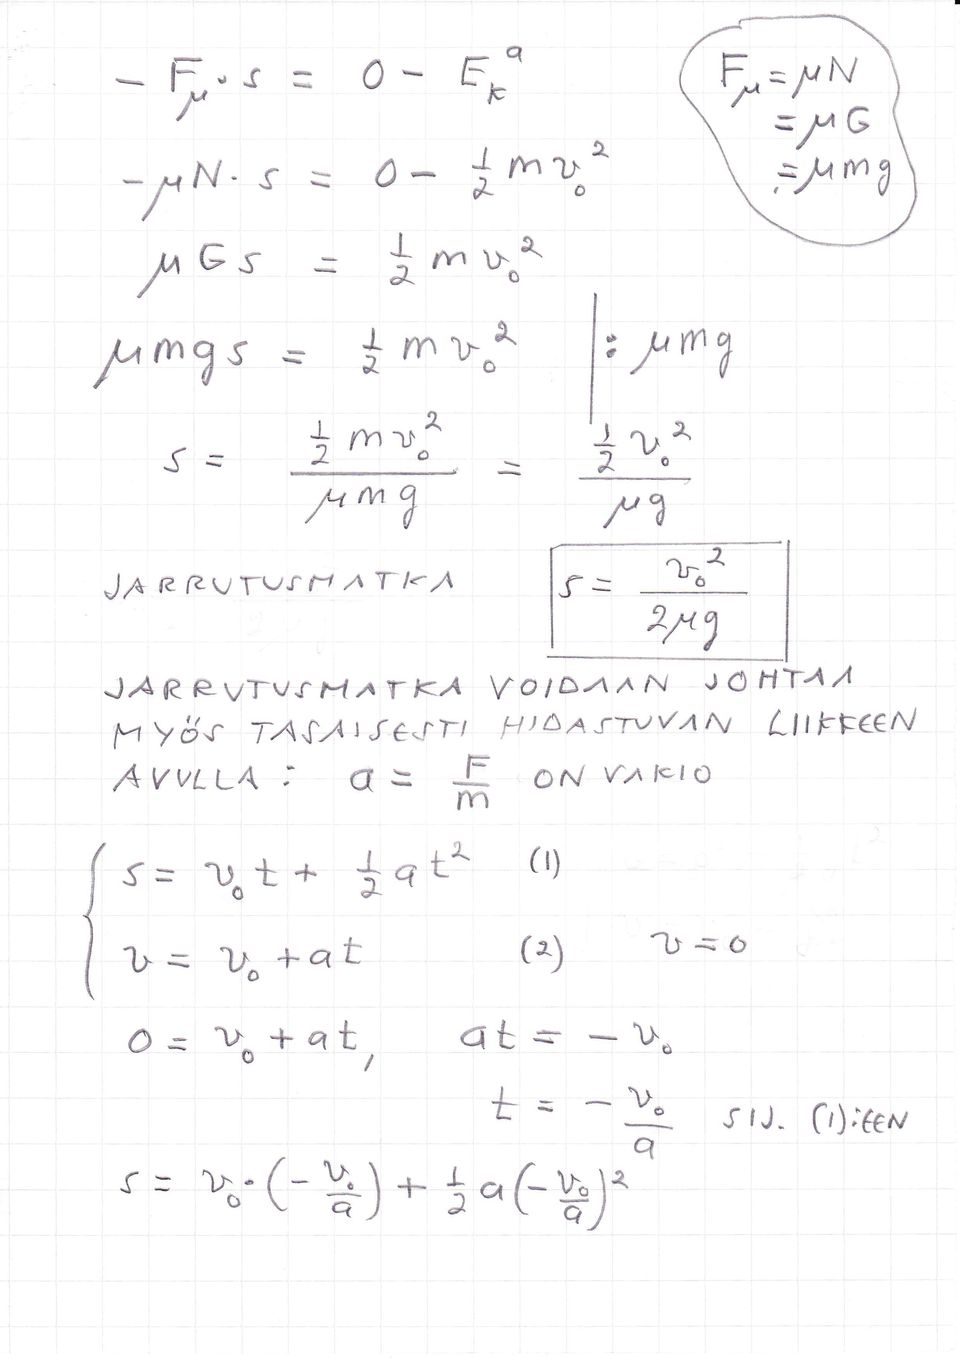 − Fμ · s = 0 − Eₖᵃ
Fμ = μN
= μG
= μmg
−μN · s = 0 − ½ m v₀²
μ G s = ½ m v₀²
μ m g s = ½ m v₀² | : μmg
s = ½ m v₀² / μ m g = ½ v₀² / μg
JARRUTUSMATKA s = v₀² / 2μg
JARRUTUSMATKA VOIDAAN JOHTAA
MYÖS TASAISESTI HIDASTUVAN LIIKKEEN
AVULLA : a = F/m ON VAKIO
s = v₀t + ½ at² (1)
v = v₀ + at (2) v = 0
0 = v₀ + at, at = − v₀
t = − v₀/a SIJ. (1):EEN
s = v₀ · (− v₀/a) + ½ a(− v₀/a)²